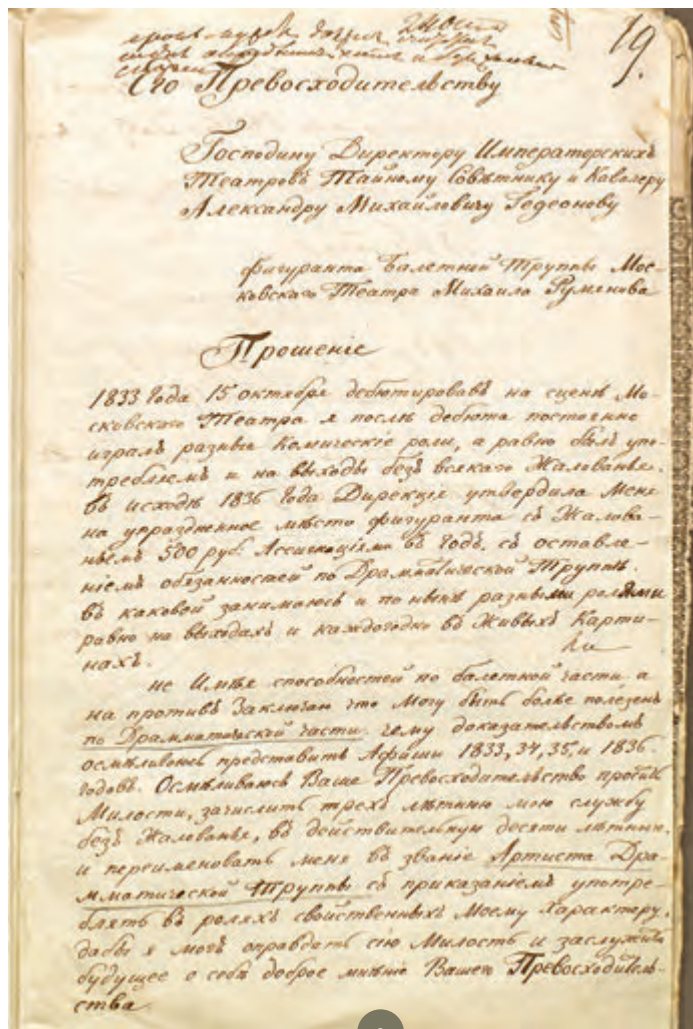 19.
Его Превосходительству
Господину Директору Императорскихъ
Театровъ Тайному Совѣтнику и Кавалеру
Александру Михайловичу Гедеонову
фигуранта Балетной Труппы Мос-
ковскаго Театра Михаила Румянова
Прошеніе
1833 Года 15 октября дебютировавъ на сценѣ Мо-
сковскаго Театра я послѣ дебюта постоянно
игралъ разные Комическіе роли, а равно былъ упо-
требляемъ и на выходы безъ всякаго Жалованья.
Въ исходѣ 1836 Года Дирекція утвердила Меня
на упраздненное мѣсто фигуранта съ Жалова-
ньемъ 500 руб: Ассигнаціями въ Годъ, съ оставле-
ніемъ обязанностей по Драмматической Труппѣ.
въ каковой занимаюсь и по нынѣ разными ролями
равно на выходахъ и каждогодно въ Живыхъ Карти-
нахъ.
не Имѣя способностей по балетной части, а
на противъ Заключаю что Могу быть болѣе полезенъ
по Драмматической части, чему доказательствомъ
осмѣливаюсь представить Афиши 1833, 34, 35, и 1836
годовъ. Осмѣливаюсь Ваше Превосходительство просить
Милости, зачислить трехъ лѣтнюю мою службу
безъ Жалованья, въ действительную десяти лѣтнюю,
и переименовать меня въ званіе Артиста Дра-
мматической Труппы съ приказаніемъ употре-
блять въ роляхъ свойственныхъ Моему Характеру,
дабы я могъ оправдать сію Милость и заслужить
будущее о себѣ доброе мнѣніе Вашего Превосходитель-
ства